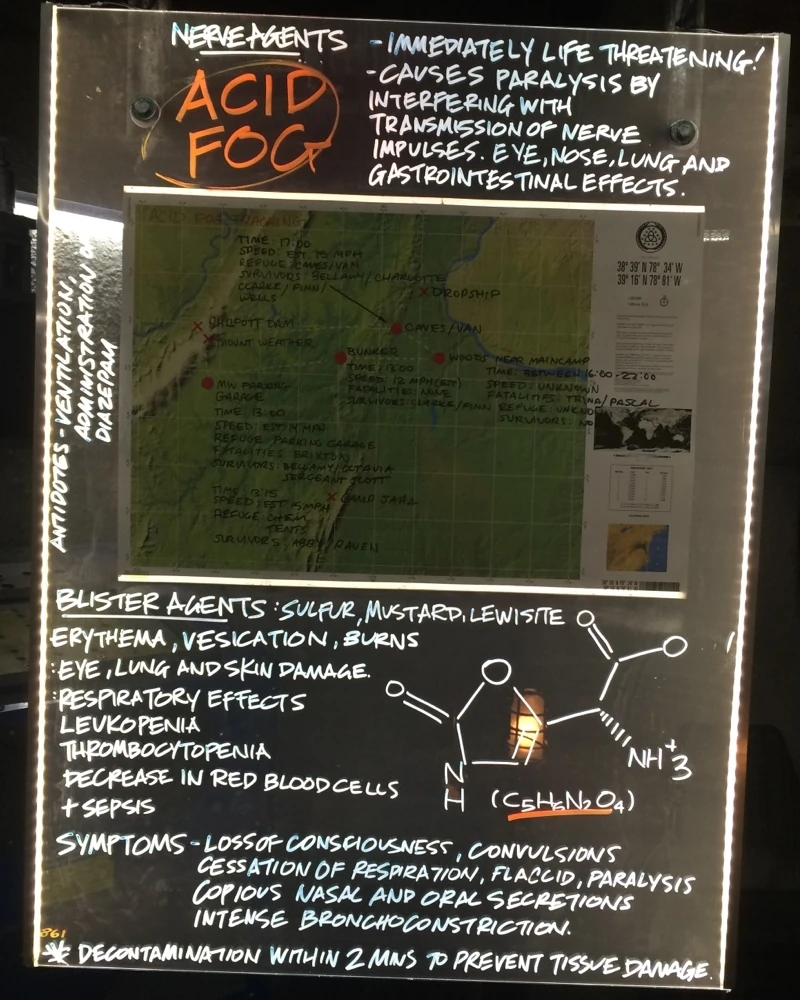 NERVE AGENTS
- IMMEDIATELY LIFE THREATENING!
- CAUSES PARALYSIS BY
INTERFERING WITH
TRANSMISSION OF NERVE
IMPULSES. EYE, NOSE, LUNG AND
GASTROINTESTINAL EFFECTS.
ACID
FOG
ANTIDOTES - VENTILATION,
ADMINISTRATION
DIAZEPAM
ACID FOG TRACKING
TIME: 17:00
SPEED: EST. 15 MPH
REFUGE: CAVES/VAN
SURVIVORS: BELLAMY/CHARLOTTE
CLARKE/FINN/
WELLS
DROPSHIP
CAVES/VAN
PHILPOTT DAM
MOUNT WEATHER
BUNKER
TIME: 13:00
SPEED: 12 MPH (EST)
FATALITIES: NONE
SURVIVORS: CLARKE/FINN
WOODS NEAR MAINCAMP
TIME: BETWEEN 16:00-22:00
SPEED: UNKNOWN
FATALITIES: TRINA/PASCAL
REFUGE:
SURVIVORS: NO
MW PARKING
GARAGE
TIME: 13:00
SPEED: EST 14 MPH
REFUGE PARKING GARAGE
FATALITIES BRIXTON
SURVIVORS: BELLAMY/OCTAVIA
SERGEANT SCOTT
CAMP JAHA
TIME: 13:15
SPEED: EST 15MPH
REFUGE: CHEM
TENTS
SURVIVORS: ABBY/RAVEN
38° 39' N 78° 34' W
39° 16' N 78° 81' W
BLISTER AGENTS: SULFUR, MUSTARD, LEWISITE
ERYTHEMA, VESICATION, BURNS
: EYE, LUNG AND SKIN DAMAGE.
: RESPIRATORY EFFECTS
LEUKOPENIA
THROMBOCYTOPENIA
DECREASE IN RED BLOOD CELLS
+ SEPSIS
O
O
O
O
N
H
NH+3
(C5H6N2O4)
SYMPTOMS - LOSS OF CONSCIOUSNESS, CONVULSIONS
CESSATION OF RESPIRATION, FLACCID, PARALYSIS
COPIOUS NASAL AND ORAL SECRETIONS
INTENSE BRONCHOCONSTRICTION.
361
* DECONTAMINATION WITHIN 2 MNS TO PREVENT TISSUE DAMAGE.